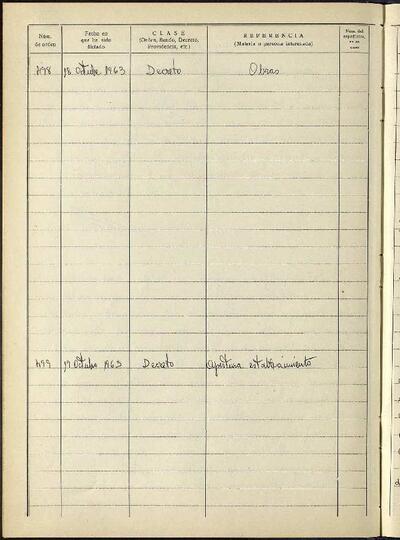 Núm. de orden
Fecha en que ha sido dictado
CLASE
(Orden, Bando, Decreto, Providencia, etc.)
REFERENCIA
(Materia o persona interesada)
Núm. del expediente, en su caso
498 18 Octubre 1963 Decreto Obras
499 17 Octubre 1963 Decreto Apertura establecimiento